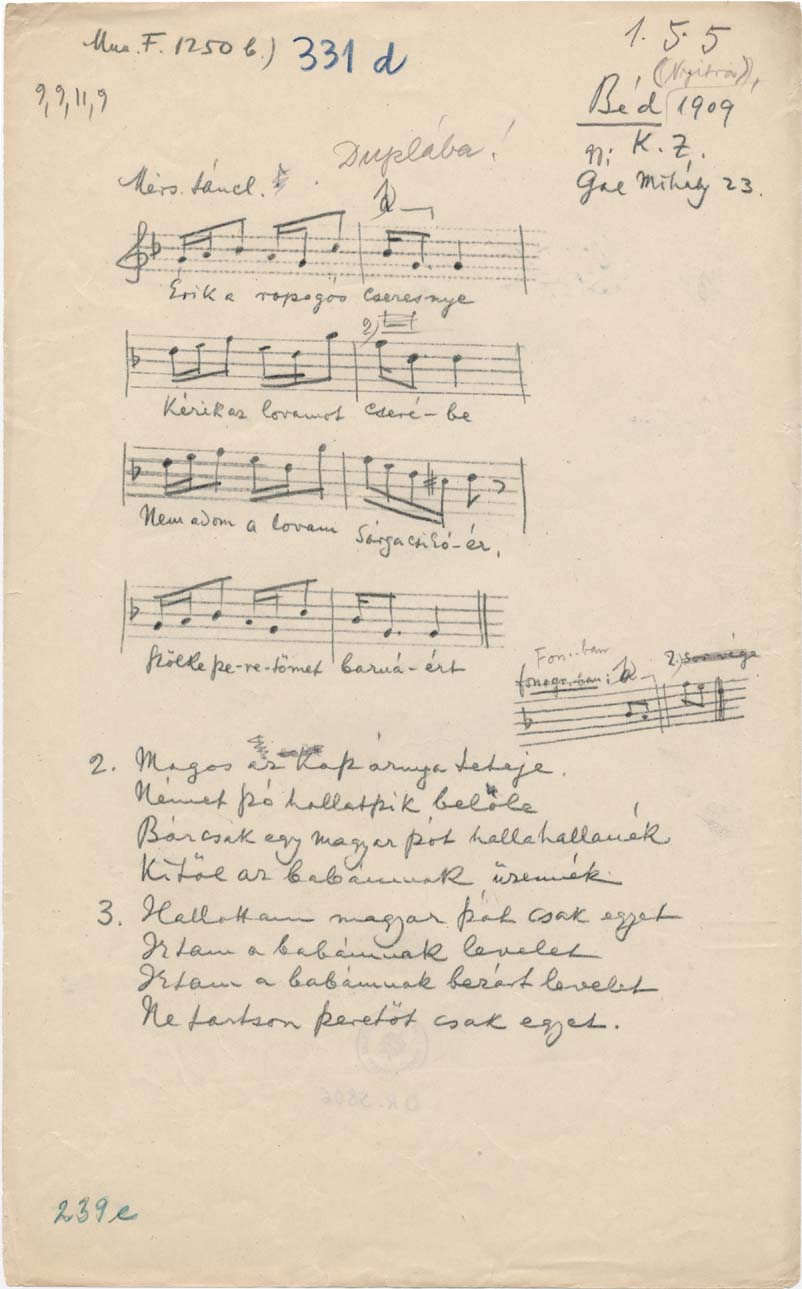 Mus. F. 1250 b.) 331 d
1. 5. 5
(Nyitra),
9, 9, 11, 9
Béd 1909
gy: K. Z.
Gál Mihály 23.
Duplába!
Mérs. táncl.
Érik a ropogós cseresnye
2)
Kérik az lovamot cseré-be
Nem adom a lovam Sárgacsikó-ér,
Szőlke sze-re-tömet barná-ért
Fon..ban
fonogr.-ban: 2. sor vége
2. Magos az kaszárnya teteje.
Német szó hallatszik belőle
Bárcsak egy magyar szót hallahallanék
Kitől az babámnak üzennék
3. Hallottam magyar szót csak egyet
Irtam a babámnak levelet
Irtam a babámnak bezárt levelet
Ne tartson szeretőt csak egyet.
239e